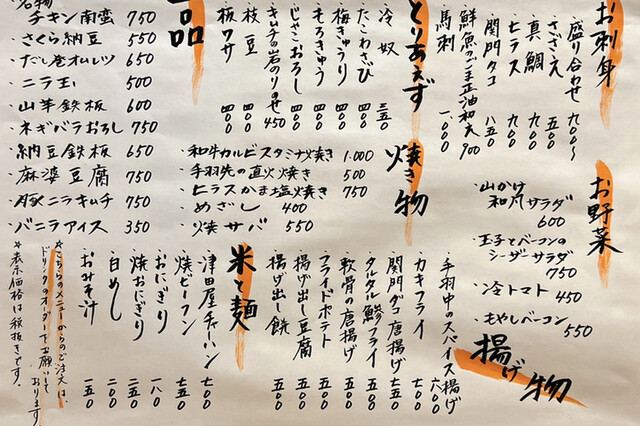 お刺身
・盛り合わせ 九〇〇〜
・さざえ 五〇〇
・真鯛 九〇〇
・ヒラス 九〇〇
・関門タコ 八五〇
・鮮魚のごま正油和え 900
・馬刺 一、〇〇〇
お野菜
・山かけ和風サラダ 600
・玉子とベーコンのシーザーサラダ 750
・冷トマト 450
・もやしベーコン 550
とりあえず
・冷奴 三五〇
・たこわさび 四〇〇
・梅きゅうり 四〇〇
・もろきゅう 四〇〇
・じゃこおろし 四〇〇
・キムチの岩のりのせ 450
・枝豆 四〇〇
・板ワサ 四〇〇
焼き物
・和牛カルビスタミナ焼き 1.000
・手羽先の直火焼き 500
・ヒラスかま塩焼き 750
・めざし 400
・焼サバ 550
揚げ物
・手羽中のスパイス揚げ 六〇〇
・カキフライ 七〇〇
・関門ダコ唐揚げ 七五〇
・タルタル鯵フライ 五五〇
・軟骨の唐揚げ 五五〇
・フライドポテト 五〇〇
・揚げ出し豆腐 五五〇
・揚げ出し餅 五〇〇
米と麺
・津田屋チャーハン 七〇〇
・焼ビーフン 七五〇
・おにぎり 一八〇
・焼おにぎり 二五〇
・白めし 二〇〇
・おみそ汁 一五〇
一品
名物
チキン南蛮 750
・さくら納豆 550
・だし巻オムレツ 650
・ニラ玉 500
・山芋鉄板 600
・ネギバラおろし 750
・納豆鉄板 650
・麻婆豆腐 750
・豚ニラキムチ 750
・バニラアイス 350
＊こちらのメニューからのご注文は、
ドリンクのオーダーでお願いしております
＊表示価格は税抜きです。